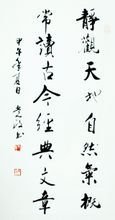 靜觀天地自然氣概
常讀古今經典文章
甲午年夏月